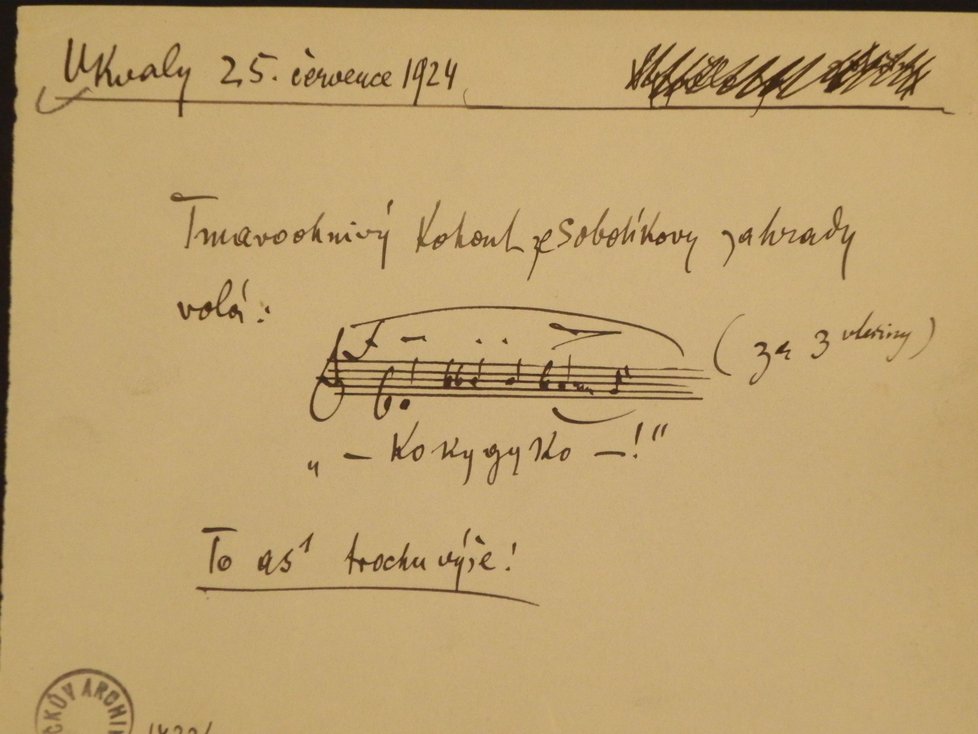 Ukvaly 25. července 1924
Tmavoohnivý Kohout ze Sobotíkovy zahrady
volá:
(za 3 vteřiny)
„ – Kokygyko – ! “
To as¹ trochu výše!
CKŮV ARCHI